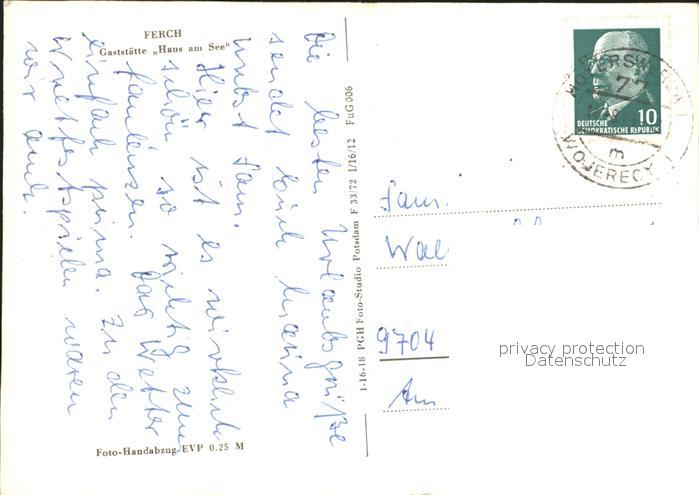 FERCH
Gaststätte „Haus am See"
Die besten Urlaubsgrüße
sendet Euch
nebst Fam.
Hier ist es wirklich
schön so richtig zum
faulenzen. Das Wetter
einfach prima. Zu den
Weltfestspielen waren
wir auch.
Foto-Handabzug EVP 0.25 M
1-16-18 PGH Foto-Studio Potsdam F 33/72 I/16/12 FuG 006
10
DEUTSCHE
DEMOKRATISCHE REPUBLIK
77
m
WOJERECY
Fam.
Wal
9704
Am
privacy protection
Datenschutz